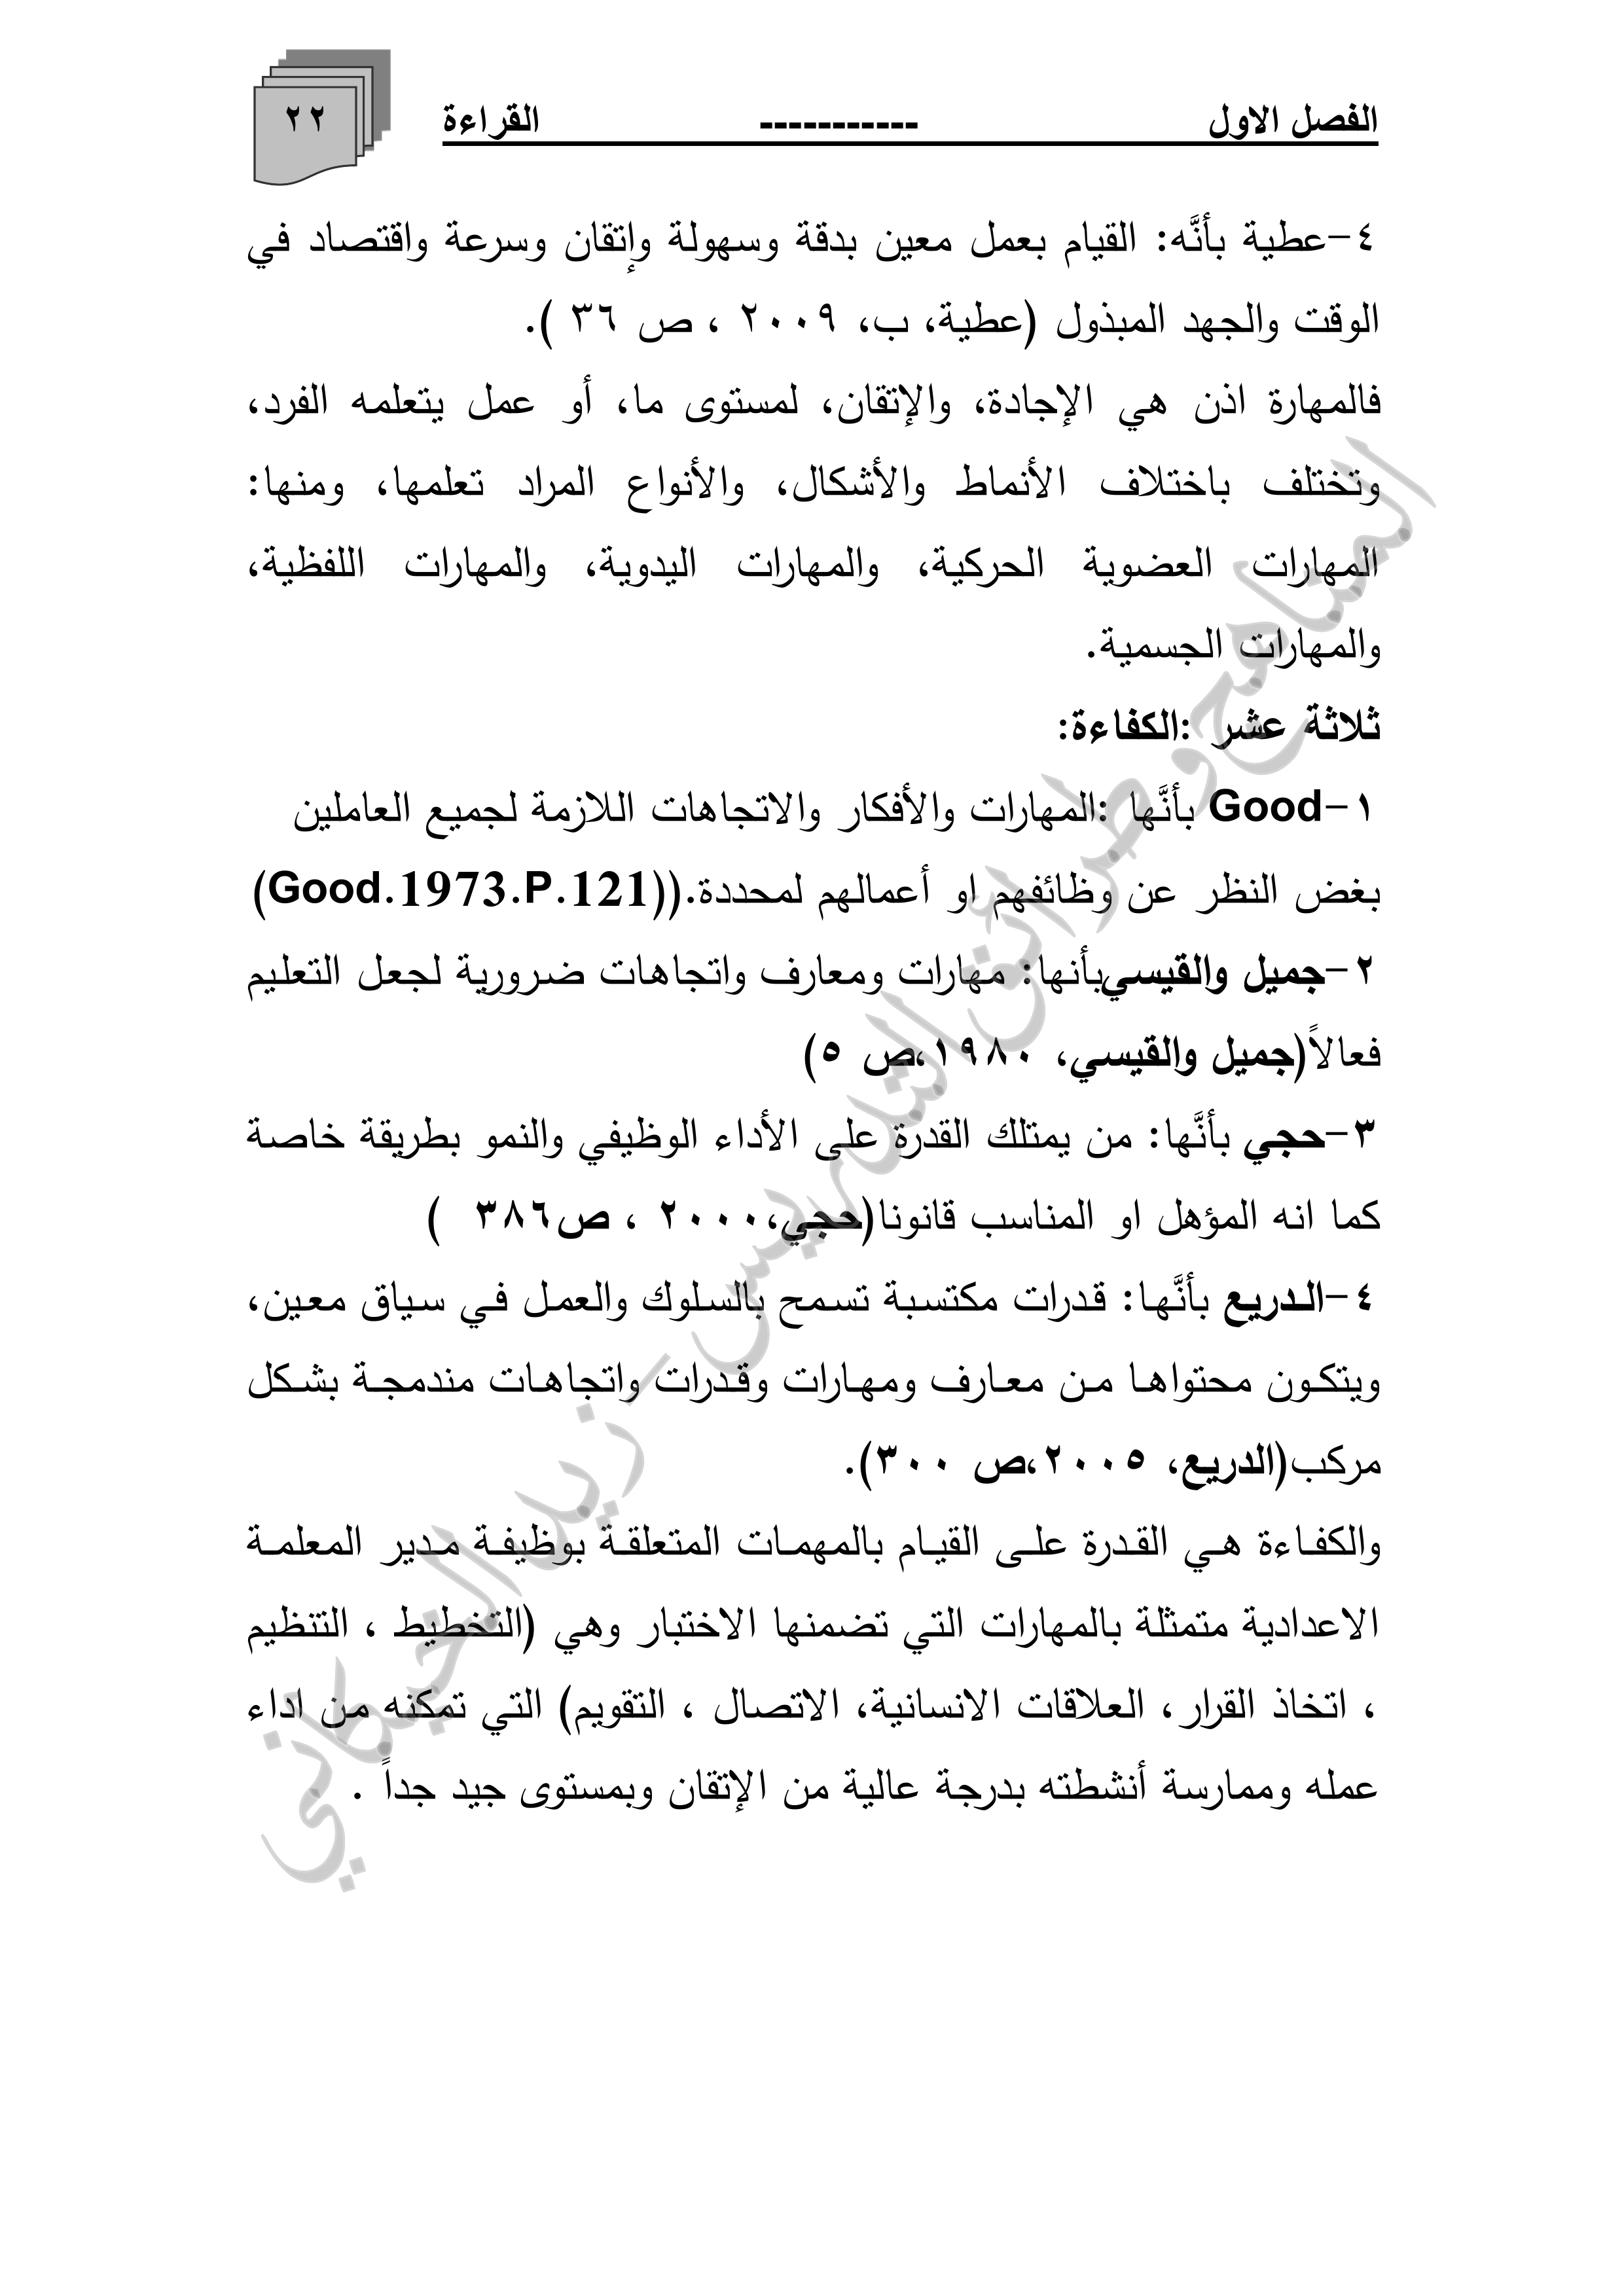 الفصل الاول ----------- القراءة
٢٢
٤-عطية بأنَّه: القيام بعمل معين بدقة وسهولة وإتقان وسرعة واقتصاد في
الوقت والجهد المبذول (عطية، ب، ٢٠٠٩ ، ص ٣٦ ).
فالمهارة اذن هي الإجادة، والإتقان، لمستوى ما، أو عمل يتعلمه الفرد،
وتختلف باختلاف الأنماط والأشكال، والأنواع المراد تعلمها، ومنها:
المهارات العضوية الحركية، والمهارات اليدوية، والمهارات اللفظية،
والمهارات الجسمية.
ثلاثة عشر :الكفاءة:
١-Good بأنَّها :المهارات والأفكار والاتجاهات اللازمة لجميع العاملين
بغض النظر عن وظائفهم او أعمالهم لمحددة.((Good.1973.P.121)
٢-جميل والقيسيبأنها: مهارات ومعارف واتجاهات ضرورية لجعل التعليم
فعالاً(جميل والقيسي، ١٩٨٠،ص ٥)
٣-حجي بأنَّها: من يمتلك القدرة على الأداء الوظيفي والنمو بطريقة خاصة
كما انه المؤهل او المناسب قانونا(حجي،٢٠٠٠ ، ص٣٨٦ )
٤-الدريع بأنَّها: قدرات مكتسبة تسمح بالسلوك والعمل في سياق معين،
ويتكون محتواها من معارف ومهارات وقدرات واتجاهات مندمجة بشكل
مركب(الدريع، ٢٠٠٥،ص ٣٠٠).
والكفاءة هي القدرة على القيام بالمهمات المتعلقة بوظيفة مدير المعلمة
الاعدادية متمثلة بالمهارات التي تضمنها الاختبار وهي (التخطيط ، التنظيم
، اتخاذ القرار، العلاقات الانسانية، الاتصال ، التقويم) التي تمكنه من اداء
عمله وممارسة أنشطته بدرجة عالية من الإتقان وبمستوى جيد جداً .
المناهج وطرائق التدريس - زيد الخيكاني